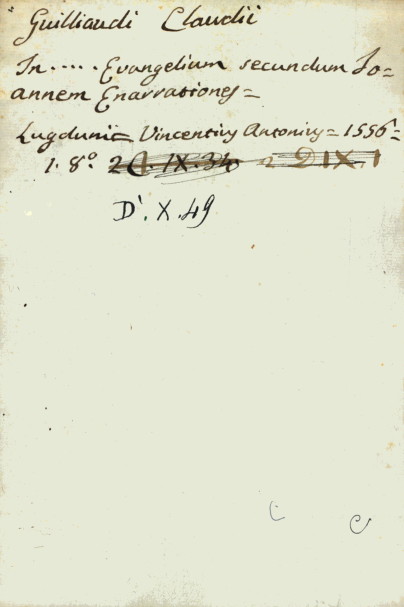 Guilliaudi Claudii
In..... Evangelium secundum Jo=
annem Enarrationes=
Lugduni= Vincentius Antonius= 1556=
1. 8° 2 C. IX. 34 2 D IX. 1
D'. X. 49